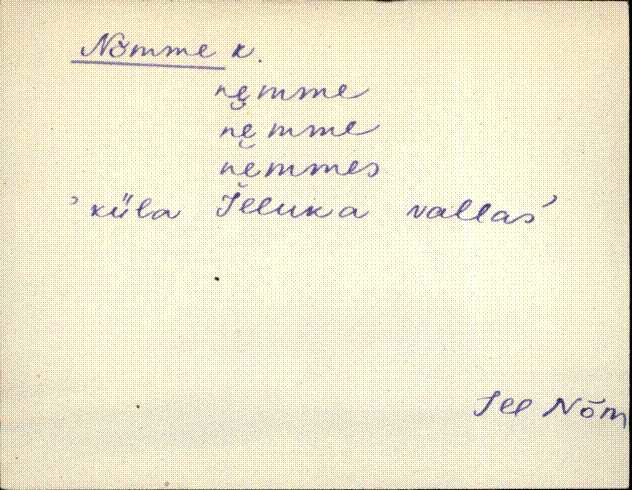 Nõmme k.
ne̮mme
ne̮mme
ne̮mmes
'küla Jēluka vallas'
Jēl Nõm